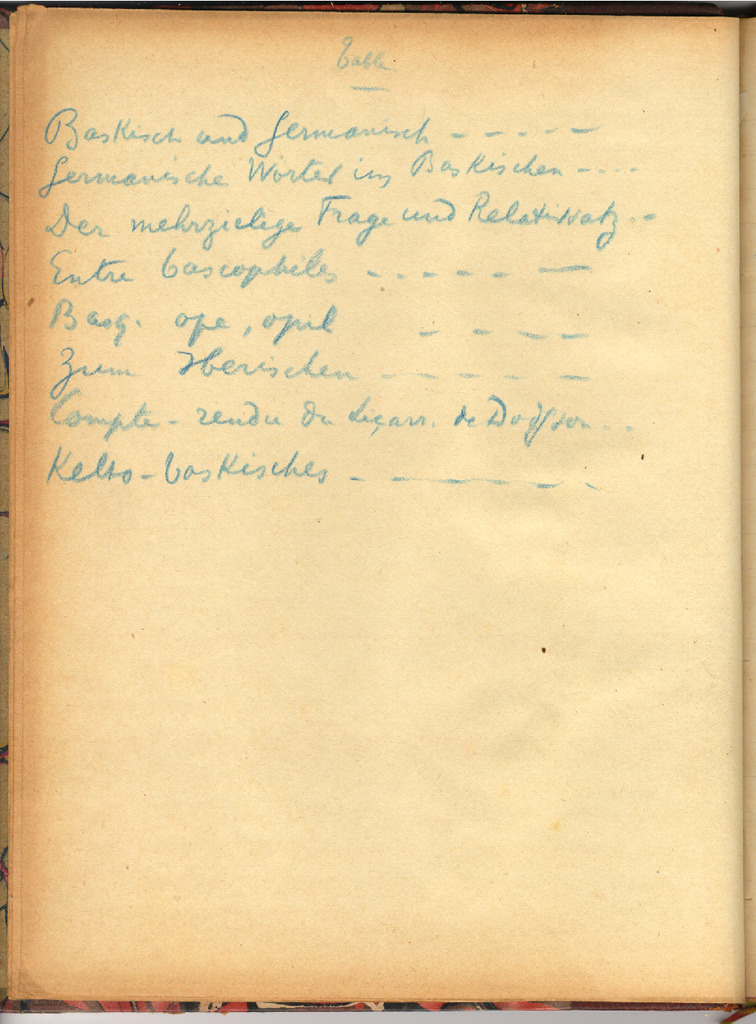 Table
Baskisch und Germanisch - - - - -
Germanische Wörter im Baskischen - - - -
Der mehrzielige Frage und Relativsatz - -
Entre bascophiles - - - - - -
Basq. ope, opil - - - -
Zum Iberischen - - - - -
Compte-rendu du Leiçarr. de Dodgson - - -
Kelto-baskisches - - - - - -